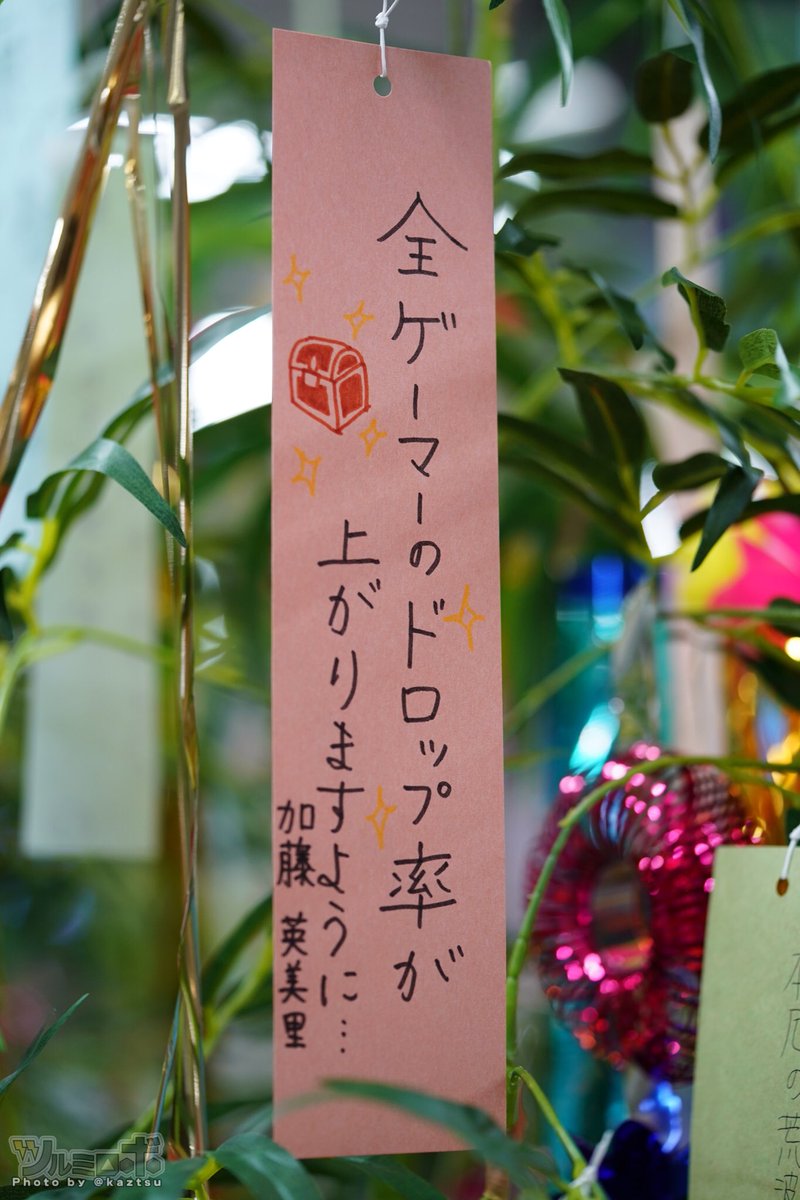 全ゲーマーのドロップ率が
上がりますように…
加藤 英美里
ツルミロボ
Photo by @kaztsu